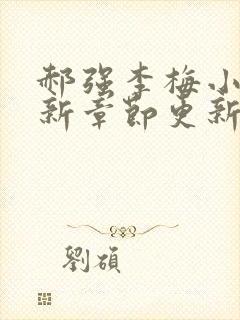 郝强李梅小
新章节更新
劉碩